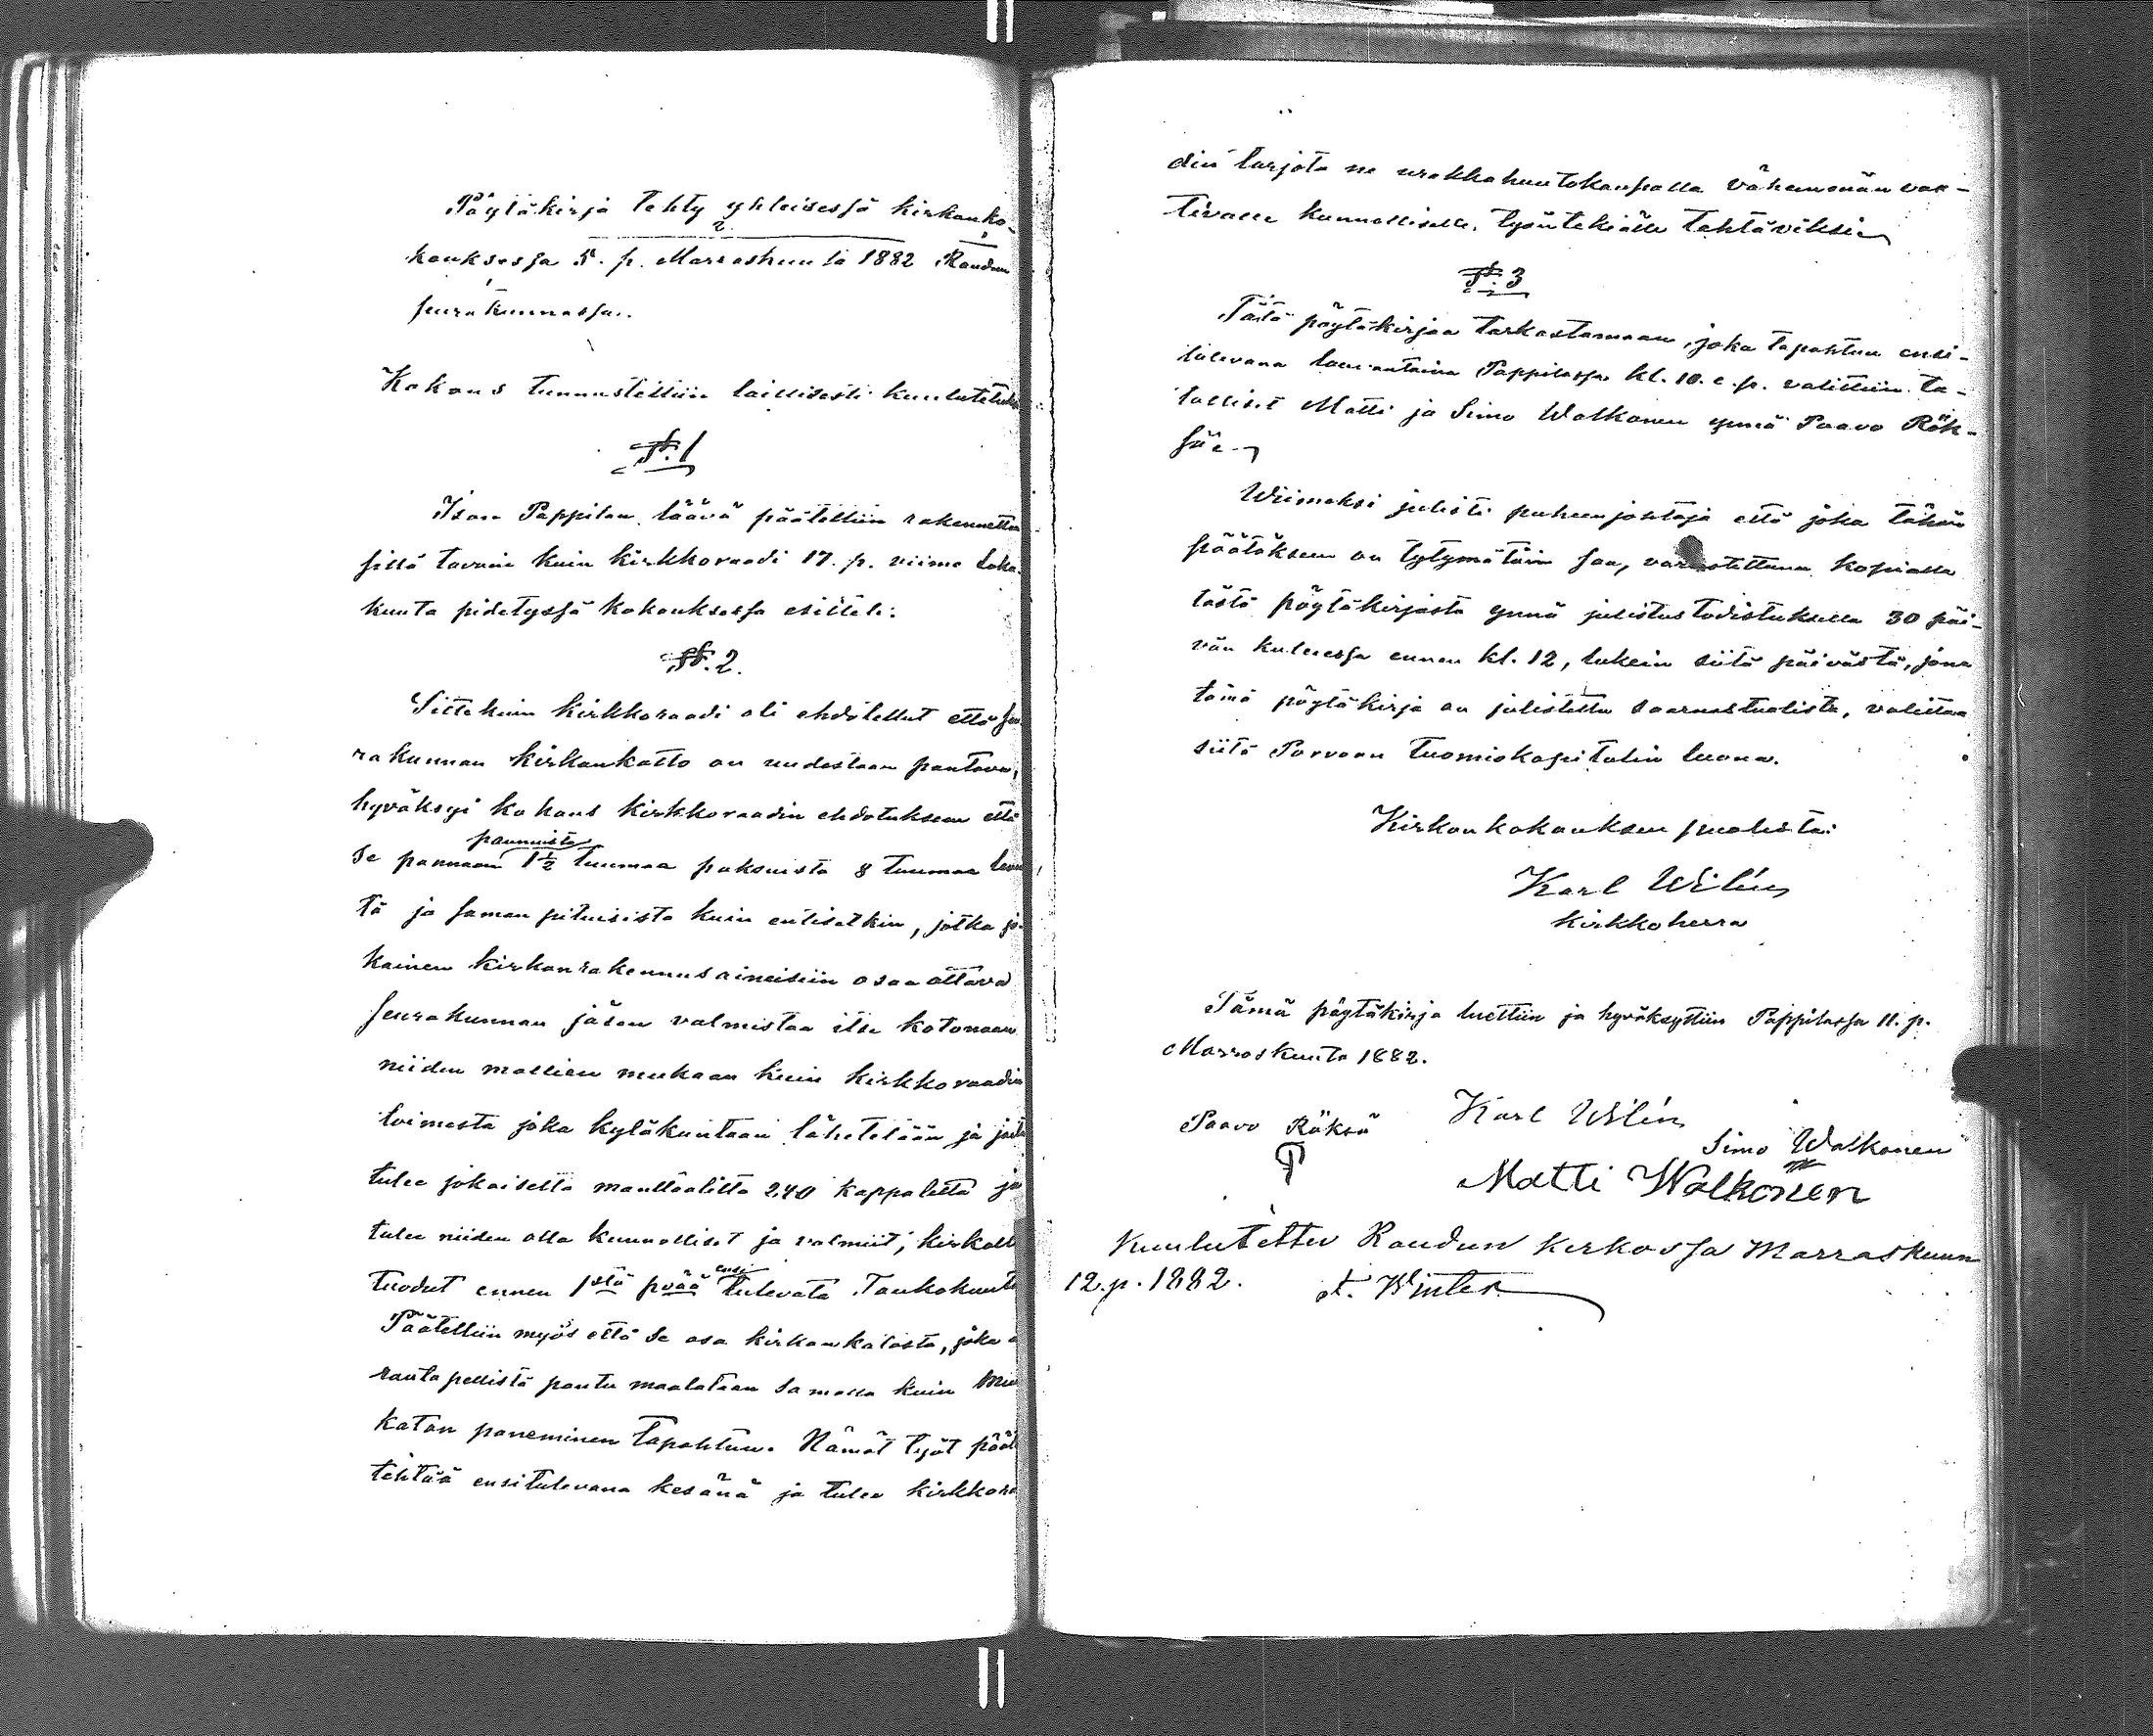 Pöytäkirja tehty yhteisessä kirkonko-
kouksessa 5. p. Marraskuuta 1882 Raudun
seurakunnassa.
Kokous tunnustettiin laillisesti kuulutetuksi
§. 1
Ison Pappilan läävä päätettiin rakennettaa
sillä tavoin kuin kirkkoraadi 17. p. viime Loka-
kuuta pidetyssä kokouksessa esitteli:
§. 2.
Sittekuin kirkkoraadi oli ehdotellut että seu
rakunnan kirkonkatto on uudestaan pantava,
hyväksyi kokous kirkkoraadin ehdotuksen että
paanuista
se pannaan 1½ tuumaa paksuista 8 tuumaa leve
tä ja saman pituisista kuin entisetkin, jotka jo-
kainen kirkonrakennusaineisiin osaa ottava
seurakunnan jäsen valmistaa itse kotonaan
niiden mallien mukaan kuin kirkkoraadin
toimesta joka kyläkuntaan lähetetään ja joita
tulee jokaiselta manttaalilta 240 kappaletta ja
tulee niiden olla kunnolliset ja valmiit, kirkolle
ensi
tuodut ennen 1stä pvää tulevata Toukokuuta
Päätettiin myös että se osa kirkonkatosta, joka o
rautapellistä pantu maalataan samalla kuin muu
katon paneminen tapahtuu. Nämät työt päät
tehtää ensitulevana kesänä ja tulee kirkkora
din tarjota ne urakkahuutokaupalla vähemmän vaa-
tivalle kunnolliselle työntekiälle tehtäviksi
§. 3
Tätä pöytäkirjaa tarkastamaan, joka tapahtuu ensi-
tulevana lauantaina Pappilassa kl. 10. e. p. valittiin ta-
lolliset Matti ja Simo Walkonen ynnä Paavo Räk-
sä
Wiimeksi julisti puheenjohtaja että joka tähän
päätökseen on tytymätöin saa, varustettuna kopialla
tästä pöytäkirjasta ynnä julistustodistuksella 30 päi-
vän kuluessa ennen kl. 12, lukein siitä päivästä, jona
tämä pöytäkirja on julistettu saarnastuolista, valittaa
siitä Porvoon Tuomiokapitulin luona.
Kirkonkokouksen puolesta:
Karl Wilén
Kirkkoherra
Tämä pöytäkirja luettiin ja hyväksyttiin Pappilassa 11. p.
Marraskuuta 1882.
Karl Wilén
Paavo Räksä
Simo Walkonen
Matti Walkonen
Kuulutettu Raudun kirkossa Marraskuun
12. p. 1882. A. Winter